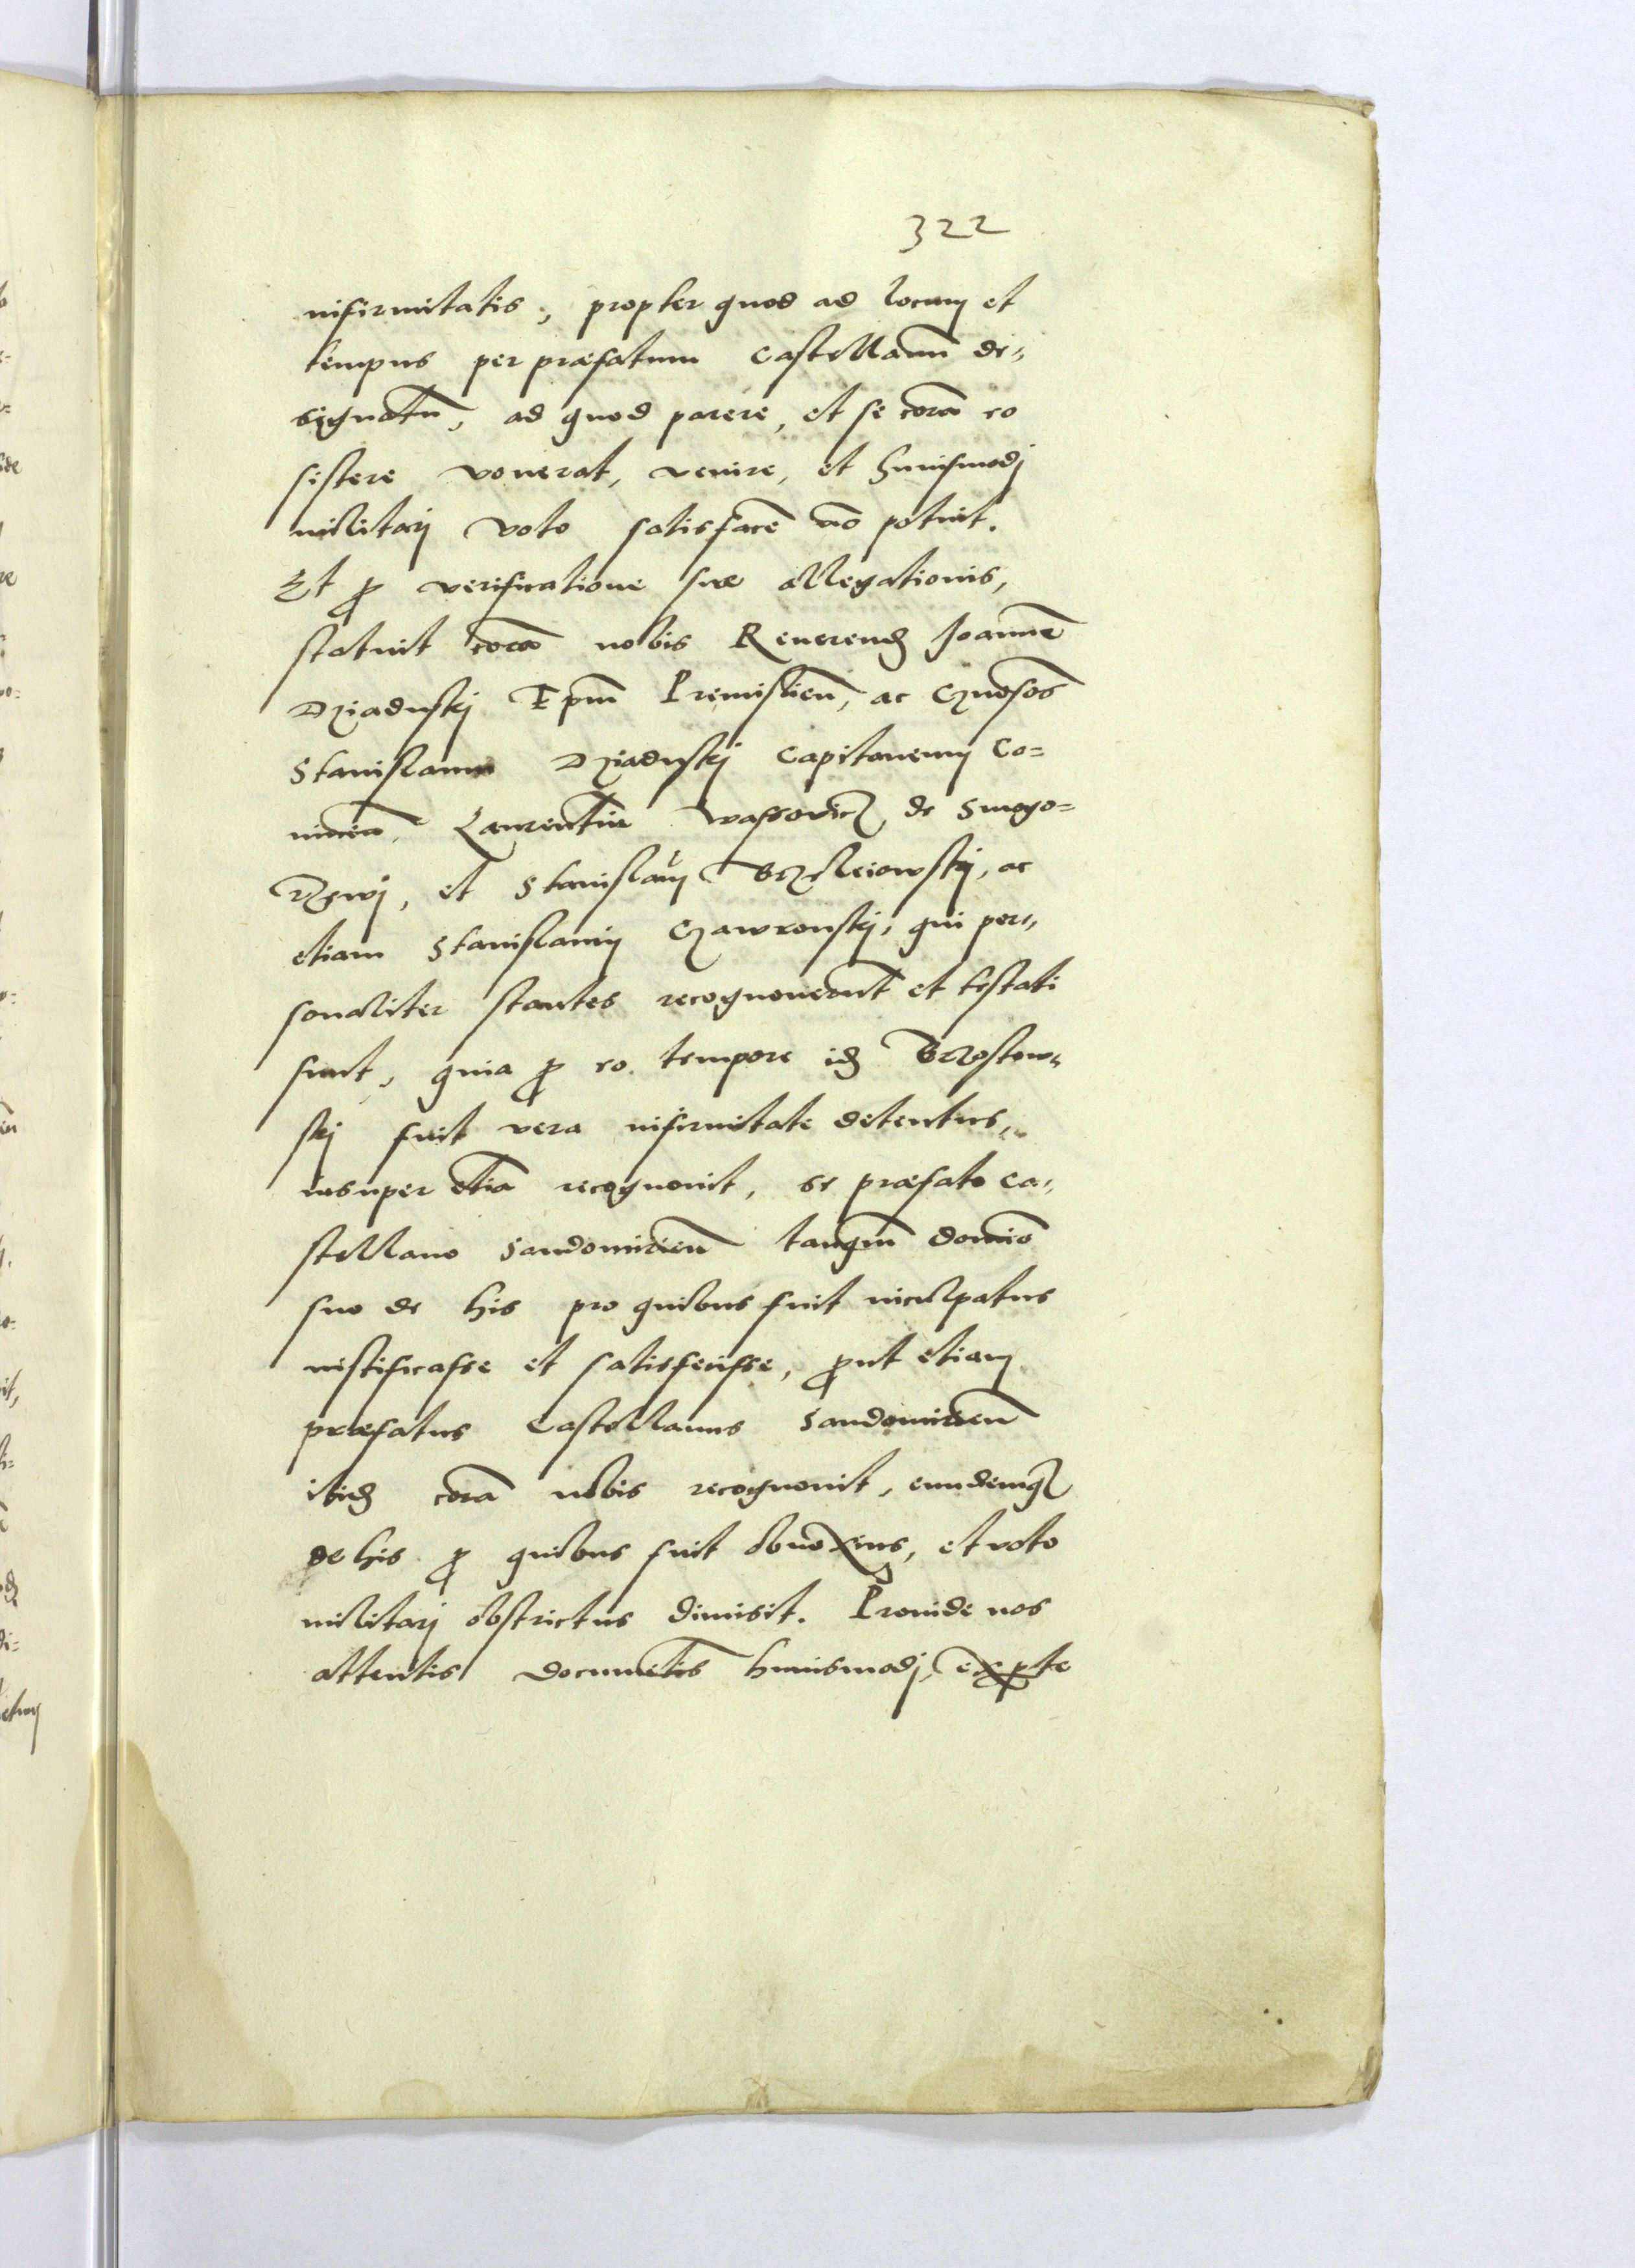 322
infirmitatis, propter quod ad locum et
tempus per praefatum Castellanũ de„
signatũ, ad quod parere, et se corã eo
sistere voverat, venire, et huiusmodj
militarj voto satisfacẽ nõ potuit.
Et ꝓ verificatione suae allegationis,
statuit corã nobis Reverendꝫ Joannẽ
Dziaduskj Epm̃ Premislieñ, ac Gnõsos
Stanislaum Dziaduskj Capitaneum Co=
nineñ, Laurentiũ Wassowicz de Smogo=
rzewj, et Stanislaũ, ac
etiam Stanislaum Gawronskj, qui per„
sonaliter stantes recognoverũt et testati
sunt, quia ꝓ eo tempore idꝫ Brzostow„
skj fuit vera infirmitate detentus,
insuper etiã recognovit, se praefato Ca„
stellano Sandomirieñ tanqm̃ domiõ
suo de his pro quibus fuit inculpatus
iustificasse et satisfecisse, ꝓut etiam
praefatus Castellanus Sandomirieñ
ibidꝫ corã nobis recognovit, eundemqꝫ
de his ꝓ quibus fuit obnoxius, et voto
militarj obstrictus dimisit. Proinde nos
attentis documẽtis huiusmodj, ex ꝑte